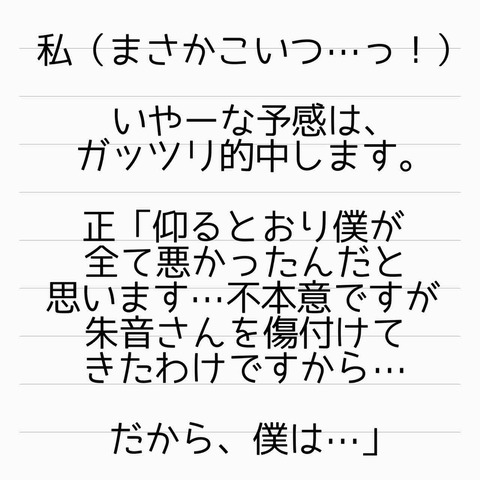 私（まさかこいつ…っ！）
いやーな予感は、
ガッツリ的中します。
正「仰るとおり僕が
全て悪かったんだと
思います…不本意ですが
朱音さんを傷付けて
きたわけですから…
だから、僕は…」